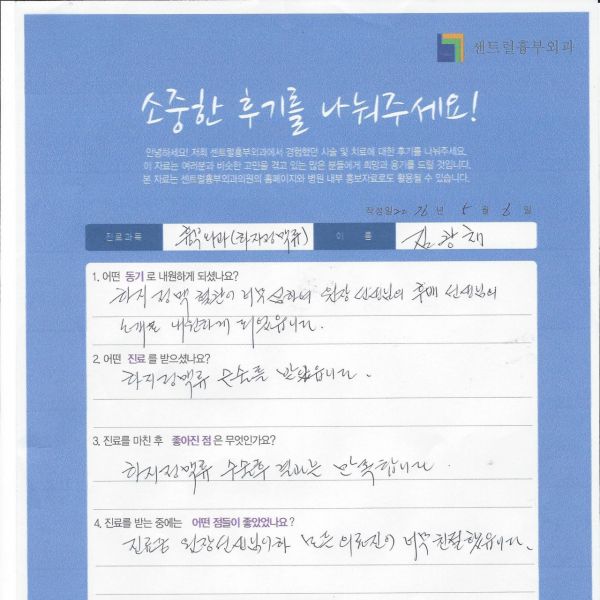 센트럴흉부외과
소중한 후기를 나눠주세요!
안녕하세요! 저희 센트럴흉부외과에서 경험했던 시술 및 치료에 대한 후기를 나눠주세요.
이 자료는 여러분과 비슷한 고민을 겪고 있는 많은 분들에게 희망과 용기를 드릴 것입니다.
본 자료는 센트럴흉부외과의원의 홈페이지와 병원 내부 홍보자료로도 활용될 수 있습니다.
작성일 년 5 월 6 일
진료과목 흉부외과(하지정맥류) 이 름 김창
1. 어떤 동기로 내원하게 되셨나요?
하지정맥 질환이 너무 심하니 원장선생님의 후배 선생님의
소개로 내원하게 되었읍니다.
2. 어떤 진료를 받으셨나요?
하지정맥류 수술을 받았읍니다.
3. 진료를 마친 후 좋아진 점은 무엇인가요?
하지정맥류 수술후 결과는 만족합니다.
4. 진료를 받는 중에는 어떤 점들이 좋았었나요?
진료중 원장선생님이하 모든 의료진이 너무 친절했읍니다.